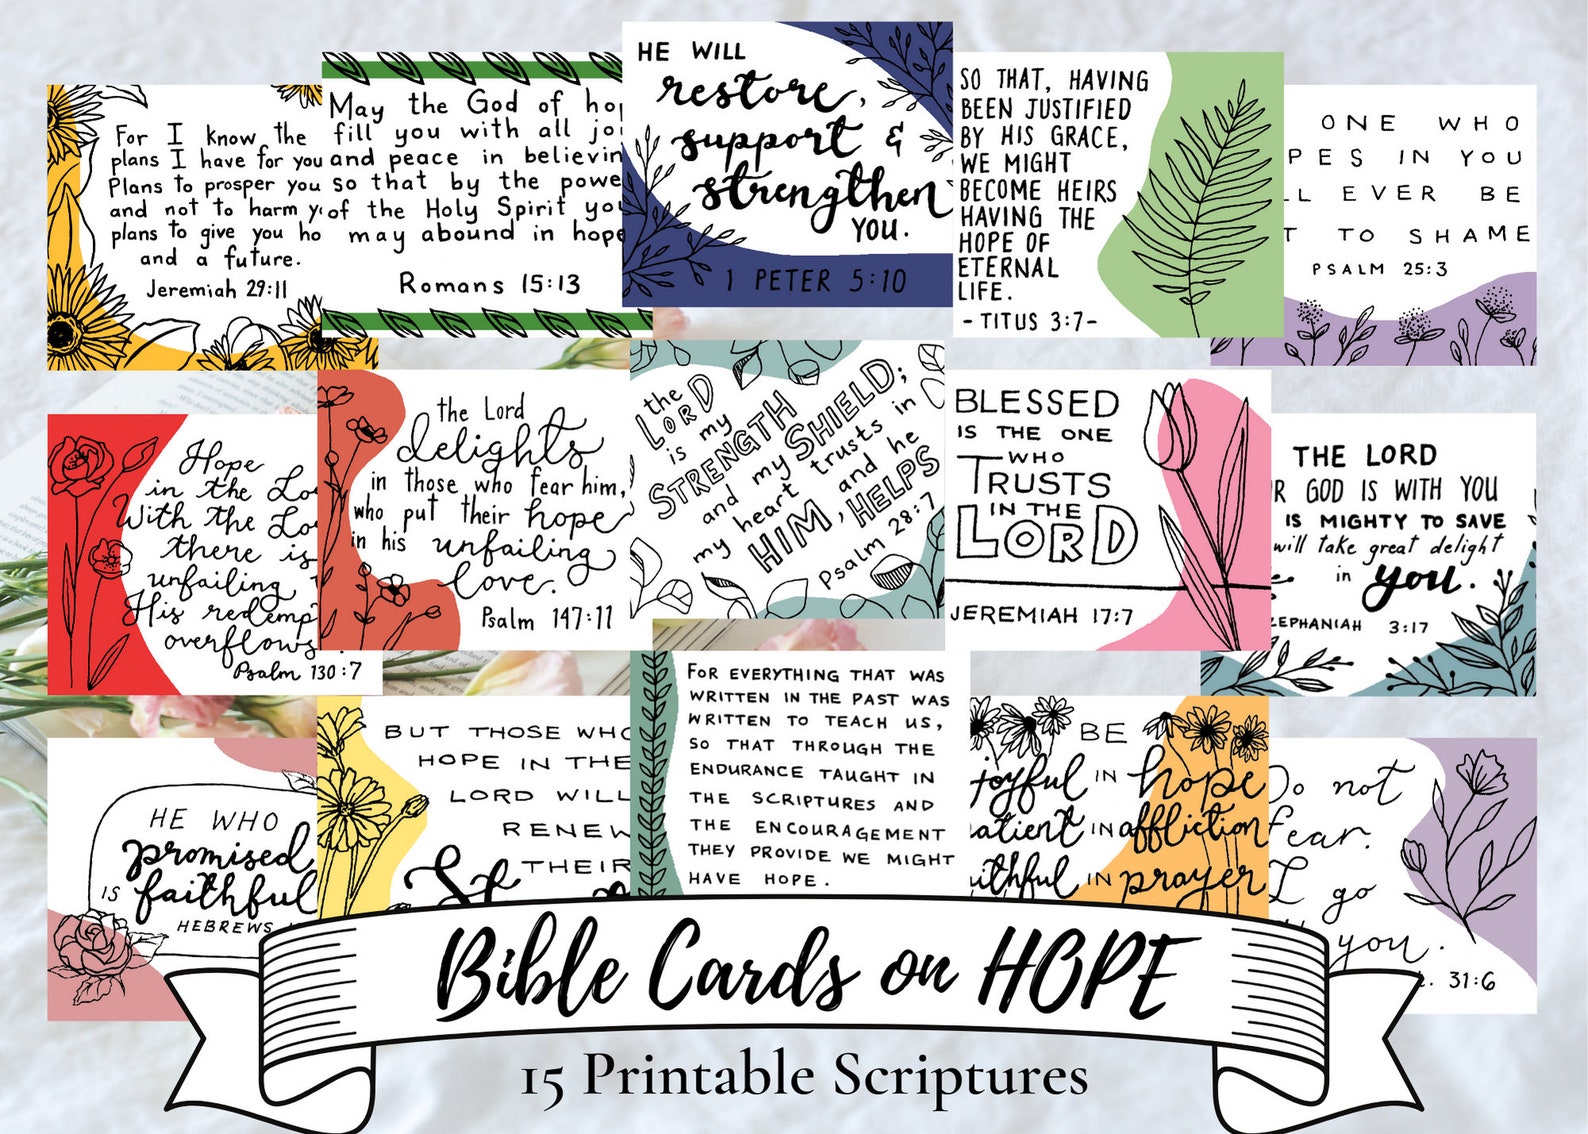 For I know the
plans I have for you
Plans to prosper you
and not to harm
plans to give you
and a future.
Jeremiah 29:11
May the God of
fill you with all
and peace in
so that by the
of the Holy Spirit
may abound in
Romans 15:13
HE WILL
restore,
support &
strengthen
YOU.
1 PETER 5:10
SO THAT, HAVING
BEEN JUSTIFIED
BY HIS GRACE,
WE MIGHT
BECOME HEIRS
HAVING THE
HOPE OF
ETERNAL
LIFE.
- TITUS 3:7 -
ONE WHO
PES IN YOU
EVER BE
TO SHAME
PSALM 25:3
Hope
in the
With the
there is
unfailing
His
overflows.
Psalm 130:7
the Lord
delights
in those who fear him,
who put their hope
in his unfailing
love.
Psalm 147:11
the
LORD
is my
STRENGTH
and my SHIELD;
my heart trusts in
HIM, and he
HELPS
Psalm 28:7
BLESSED
IS THE ONE
WHO
TRUSTS
IN THE
LORD
JEREMIAH 17:7
THE LORD
R GOD IS WITH YOU
IS MIGHTY TO SAVE
will take great delight
in you.
EPHANIAH 3:17
HE WHO
promised
IS faithful
HEBREWS
BUT THOSE WHO
HOPE IN THE
LORD WILL
RENEW
THEIR
FOR EVERYTHING THAT WAS
WRITTEN IN THE PAST WAS
WRITTEN TO TEACH US,
SO THAT THROUGH THE
ENDURANCE TAUGHT IN
THE SCRIPTURES AND
THE ENCOURAGEMENT
THEY PROVIDE WE MIGHT
HAVE HOPE.
BE
joyful IN hope
atient IN affliction
ithful IN prayer
Do not
fear.
I go
you.
31:6
Bible Cards on HOPE
15 Printable Scriptures